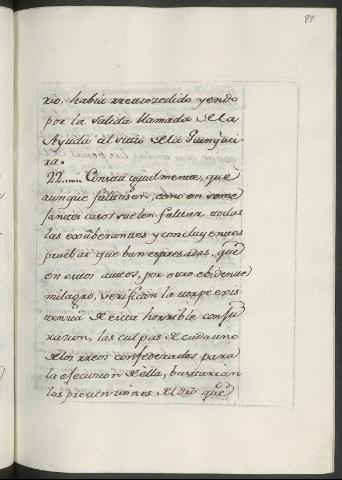 rio, había retrocedido yendo
por la salida llamada de la
Ayuda al sitio de la
22...... Consta igualmente, que
aunque faltasen, como en seme
jantes casos suelen faltar todas
las exûberantes y concluyentes
pruebas que van expresadas, que
en estos autos, por otro ebidente
milagro, verifican la torpe exis
tencia de esta horrible conju
racion, las culpas de cada uno
de los reos confederados para
la efecucion de ella, bastarian
las presunciones del dro que